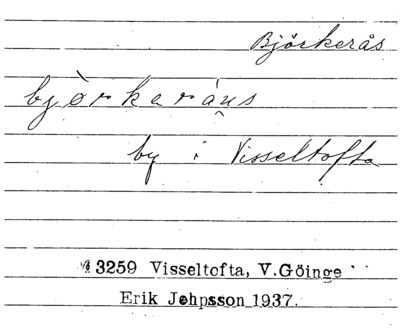 Björkerås
bjòrkaráu̯s
by i Visseltofta
3259 Visseltofta, V.Göinge
Erik Jehpsson 1937.